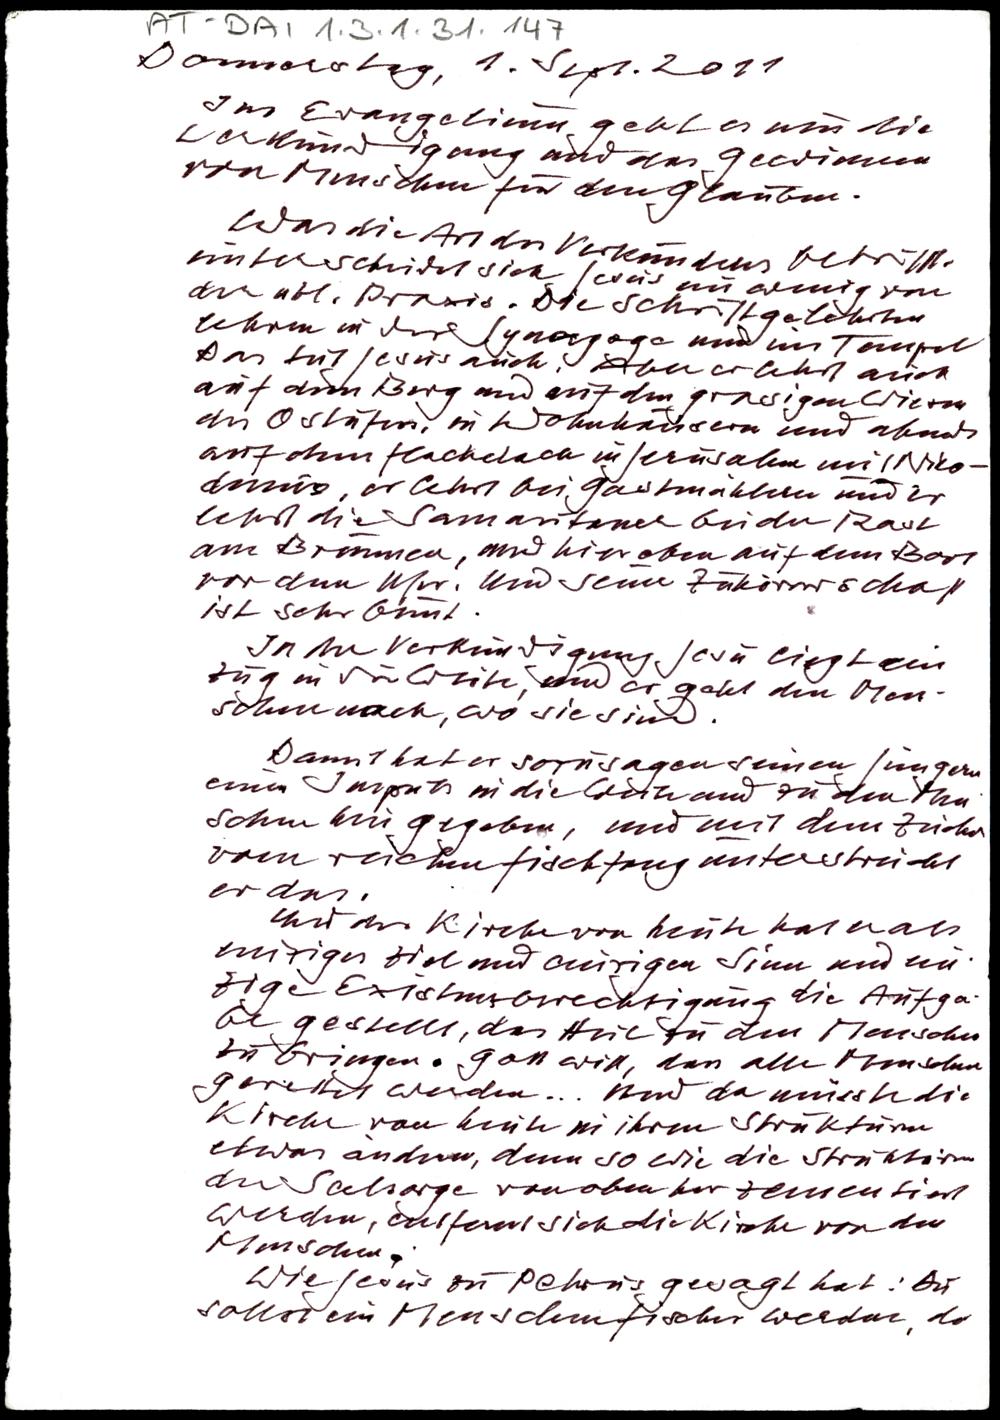 AT-DAI 1.3.1.31.147
Donnerstag, 1. Sept. 2011
Im Evangelium geht es um die
Verkündigung und das Gewinnen
von Menschen für den Glauben.
Was die Art des Verkündens betrifft,
unterscheidet sich Jesus ein wenig von
der übl. Praxis. Die Schriftgelehrten
lehren in der Synagoge und im Tempel
Das tut Jesus auch. Aber er lehrt auch
auf dem Berg und auf den grasigen Wiesen
des Ostufers, in Wohnhäusern und abends
auf dem Flachdach in Jerusalem mit Niko-
demus, er lehrt bei Gastmählern und er
lehrt die Samariterin bei der Rast
am Brunnen, und hier oben auf dem Boot
vor dem Ufer. Und seine Zuhörerschaft
ist sehr bunt.
In der Verkündigung Jesu liegt ein
Zug in die Weite, und er geht den Men-
schen nach, wo sie sind.
Damit hat er sozusagen seinen Jüngern
einen Impuls in die Weite und zu den Men
schen hin gegeben, und mit dem Zeichen
vom reichen Fischfang unterstreicht
er das.
Und der Kirche von heute hat er als
einziges Ziel und einzigen Sinn und ein
zige Existenzberechtigung die Aufga-
be gestellt, das Heil zu den Menschen
zu bringen. Gott will, dass alle Menschen
gerettet werden... Und da müsste die
Kirche von heute in ihren Strukturen
etwas ändern, denn so wie die Strukturen
der Seelsorge von oben her zementiert
werden, entfernt sich die Kirche von den
Menschen.
Wie Jesus zu Petrus gesagt hat: Du
sollst ein Menschenfischer werden, da